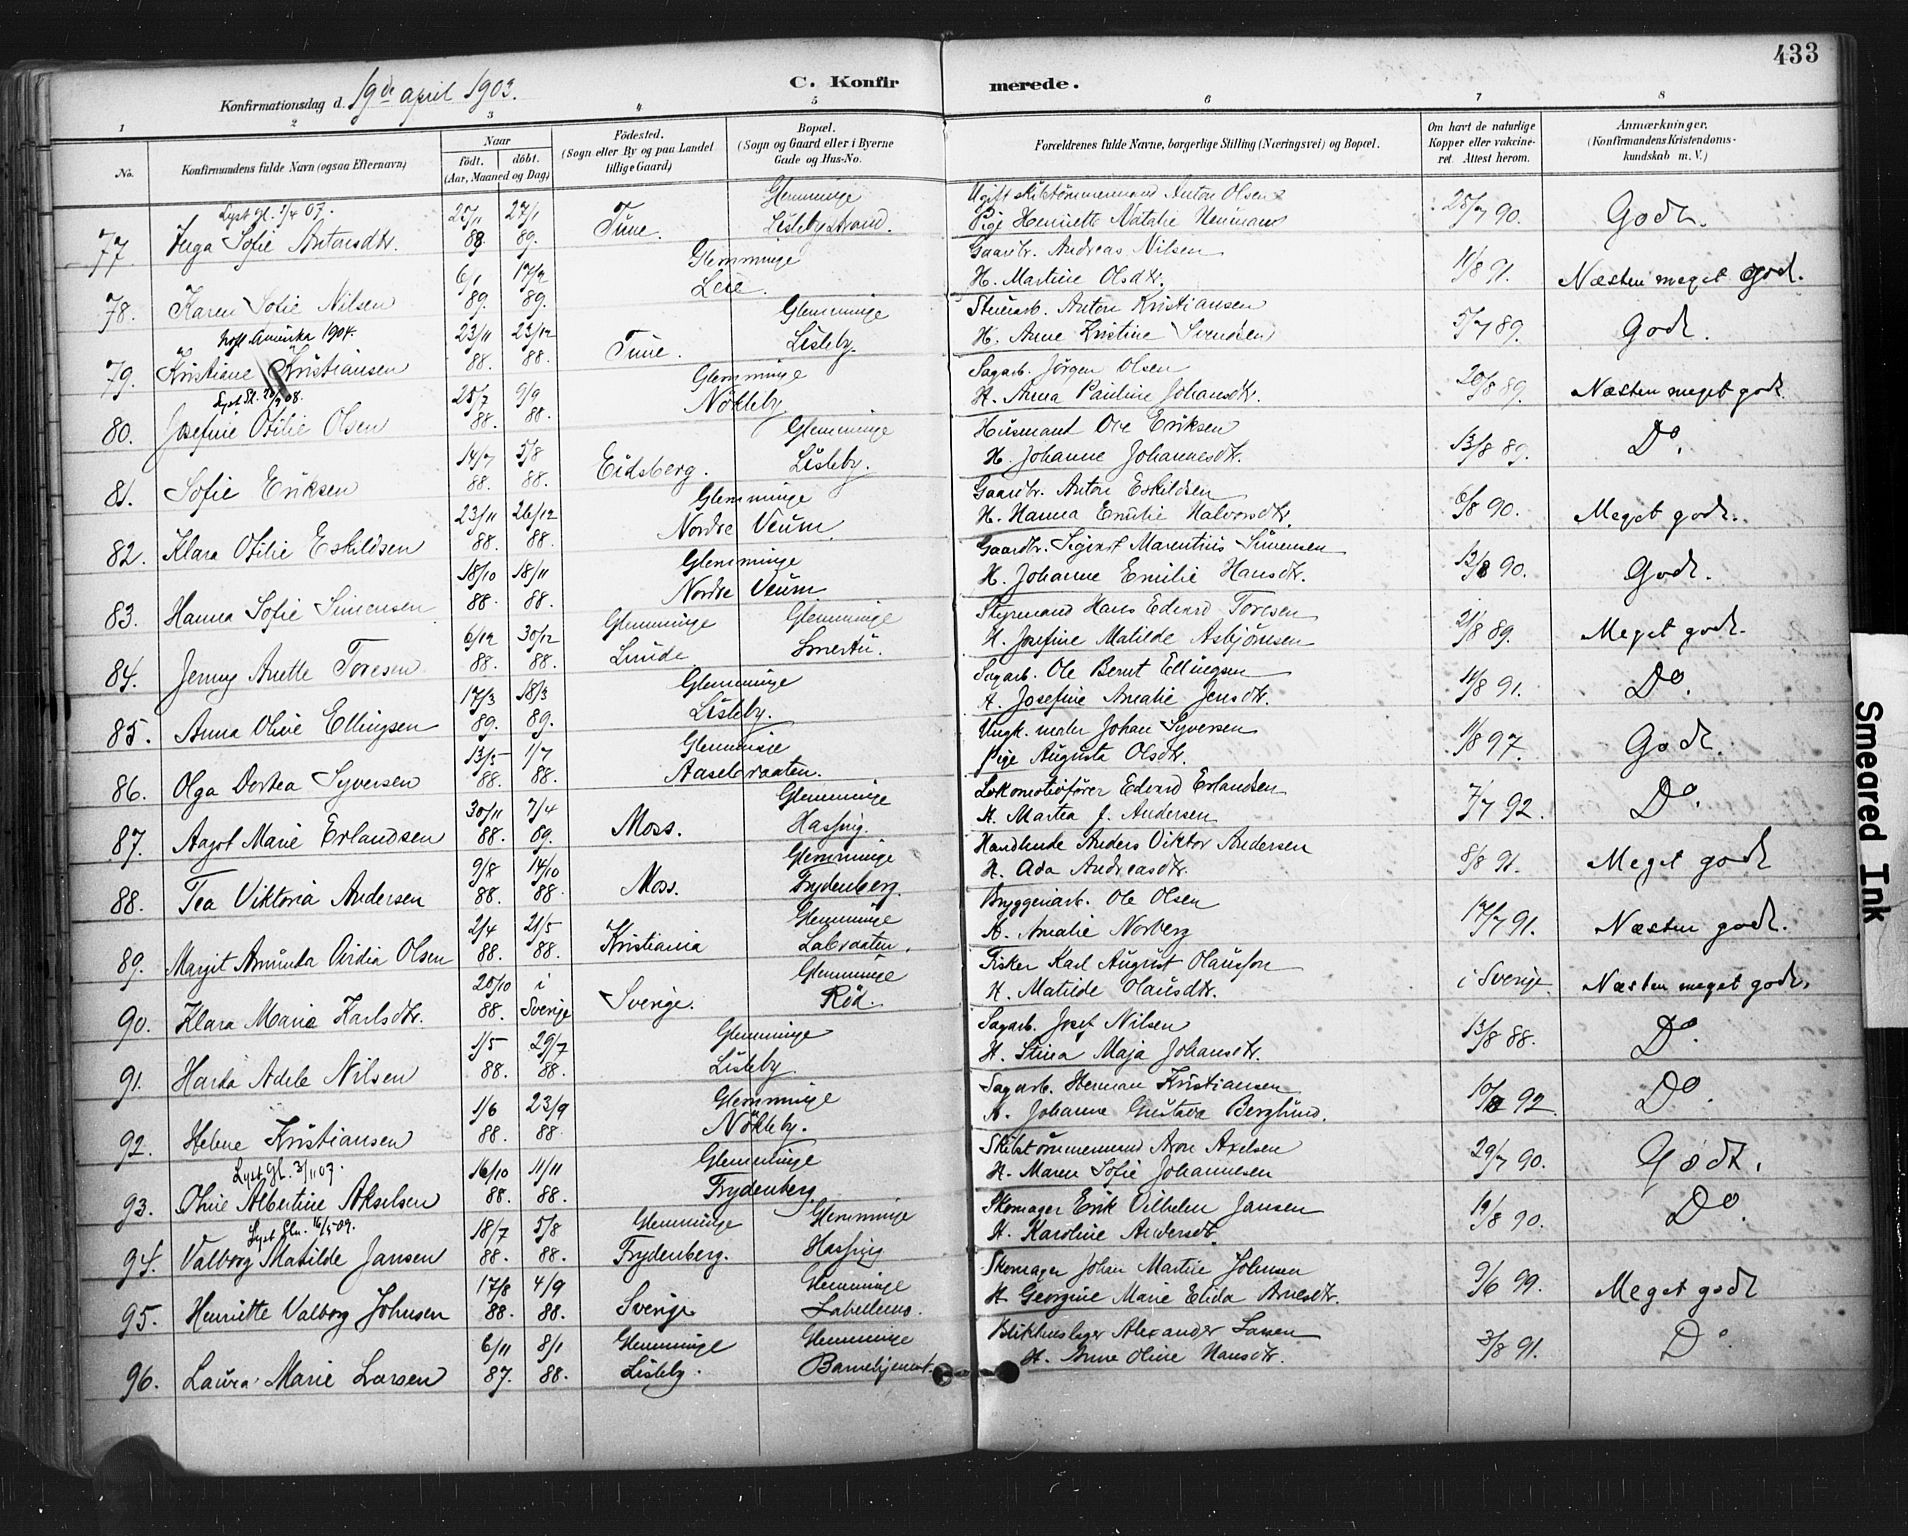 433
C. Konfirmerede.
Konfirmationsdag d. 19de april 1903.
1 2 3 4 5 6 7 8
No.
Konfirmandens fulde Navn (ogsaa Efternavn)
Naar
født. døbt.
(Aar, Maaned og Dag)
Födested.
(Sogn eller By og paa Landet
tillige Gaard)
Bopæl.
(Sogn og Gaard eller i Byerne
Gade og Hus-No.
Forældrenes fulde Navne, borgerlige Stilling (Næringsvei) og Bopæl.
Om havt de naturlige
Kopper eller vakcine-
ret. Attest herom.
Anmærkninger.
(Konfirmandens Kristendoms-
kundskab m. V.)
Lyst gl. 1/4 07.
77 Inga Sofie Antonsdtr. 25/11 88 27/1 89. Tune. Glemminge Lislebystrand.
Ugift skibtømmermand Anton Olsen
Pige Henriette Natalie 25/7 90. Godt.
78. Karen Sofie Nilsen 6/1 89. 17/2 89. Glemminge Leie.
Gaardbr. Andreas Nilsen
H. Martine Olsdtr. 11/8 91. Næsten meget god.
Amerika 1904.
79. Kristiane Kristiansen 23/11 88. 23/12 88. Tune. Glemminge Lisleby.
Stenarb. Anton Kristiansen
H. Anne Kristine Svendsen 5/7 89. Godt.
80. Josefine Otilie Olsen 25/7 88. 9/9 88. Glemminge Nökleby
Sagarb. Jörgen Olsen
H. Anna Pauline Johansdtr. 20/8 89. Næsten meget godt
81. Sofie Eriksen 14/7 88. 5/8 88. Eidsberg. Glemminge Lisleby.
Husmand Ove Eriksen
H. Johanne Johannesdtr. 13/8 89. Do.
82. Klara Otilie Eskildsen 23/11 88. 26/12 88. Glemminge Nordre Veum.
Gaardbr. Anton Eskildsen
H. Hanna Emilie Halvorsdtr. 6/8 90. Meget godt.
83. Hanna Sofie Simensen 18/10 88. 18/11 88. Glemminge Nordre Veum
Gaardbr. Sigvart Marentius Simensen
H. Johanne Emilie Hansdtr. 12/8 90. Godt.
84. Jenny Anette Toresen 6/12 88. 30/12 88. Glemminge Lunde Glemminge Smertu.
Styrmand Hans Edvard Toresen
H. Josefine Matilde Asbjörnsen 21/8 89. Meget godt.
85. Anna Olivie Ellingsen 17/3 89. 18/3 89. Glemminge Lisleby.
Sagarb. Ole Bernt Ellingsen
H. Josefine Amalie Jensdtr. 11/8 91. Do.
86. Olga Dortea Syversen 13/5 88. 1/7 88. Glemminge Aasebraaten.
Ungk. maler Johan Syversen
Pige Augusta Olsdtr. 11/8 97. Godt.
87. Aagot Marie Erlandsen 30/11 88. 7/4 89. Moss. Glemminge Hassing.
Lokomotivförer Edvard Erlandsen
H. Martea J. Andersen 7/7 92. Do.
88. Tea Viktoria Andersen 9/8 88. 14/10 88. Moss. Glemminge Frydenberg.
Handlende Anders Viktor Andersen
H. Ada Andreasdtr. 8/8 91. Meget godt
89. Margit Amunda Ovidia Olsen 2/4 88. 21/5 88. Kristiania Glemminge Labraaten.
Bryggeriarb. Ole Olsen
H. Amalie Norberg 17/7 91. Næsten godt.
90. Klara Marie Karlsdtr. 20/10 88. i Sverige Sverige. Glemminge Röd.
Fisker Karl August Olausson
H. Matilde Olausdtr. i Sverige. Næsten meget godt.
91. Harda Adele Nilsen 1/5 88. 29/7 88. Glemminge Lisleby.
Sagarb. Josef Nilsen
H. Stina Maja Johansdtr. 13/8 88. Do.
92. Helene Kristiansen 1/6 88. 23/9 88. Glemminge Nökleby.
Sagarb. Herman Kristiansen
H. Johanne Gustava Berglund. 92. Do.
Lyst gl. 3/11 07.
93. Olivie Albertine Akselsen 16/10 88. 11/11 88. Glemminge Frydenberg
Skibstömmermand Aron Axelsen
H. Maren Sofie Johannesen 29/7 90. Godt.
Lyst Glm. 16/5 09.
94. Valborg Matilde Jansen 18/7 88. 5/8 88. Glemminge Frydenberg. Glemminge Hassing
Skomager Erik Vilhelm Jansen
H. Karoline Andersdtr. 19/8 90. Do.
95. Henriette Valborg Johnsen 17/8 88. 4/9 88. Sverige Glemminge
Skomager Johan Martin Johnsen
H. Georgine Marie Elida Arnesdtr. 9/6 99. Meget godt
96. Laura Marie Larsen 6/11 87. 8/1 88. Glemminge Lisleby. Glemminge Barnehjemmet.
Blikkenslager Alexander Larsen
H. Anne Oline Hansdtr. 3/8 91. Do
Smeared Ink